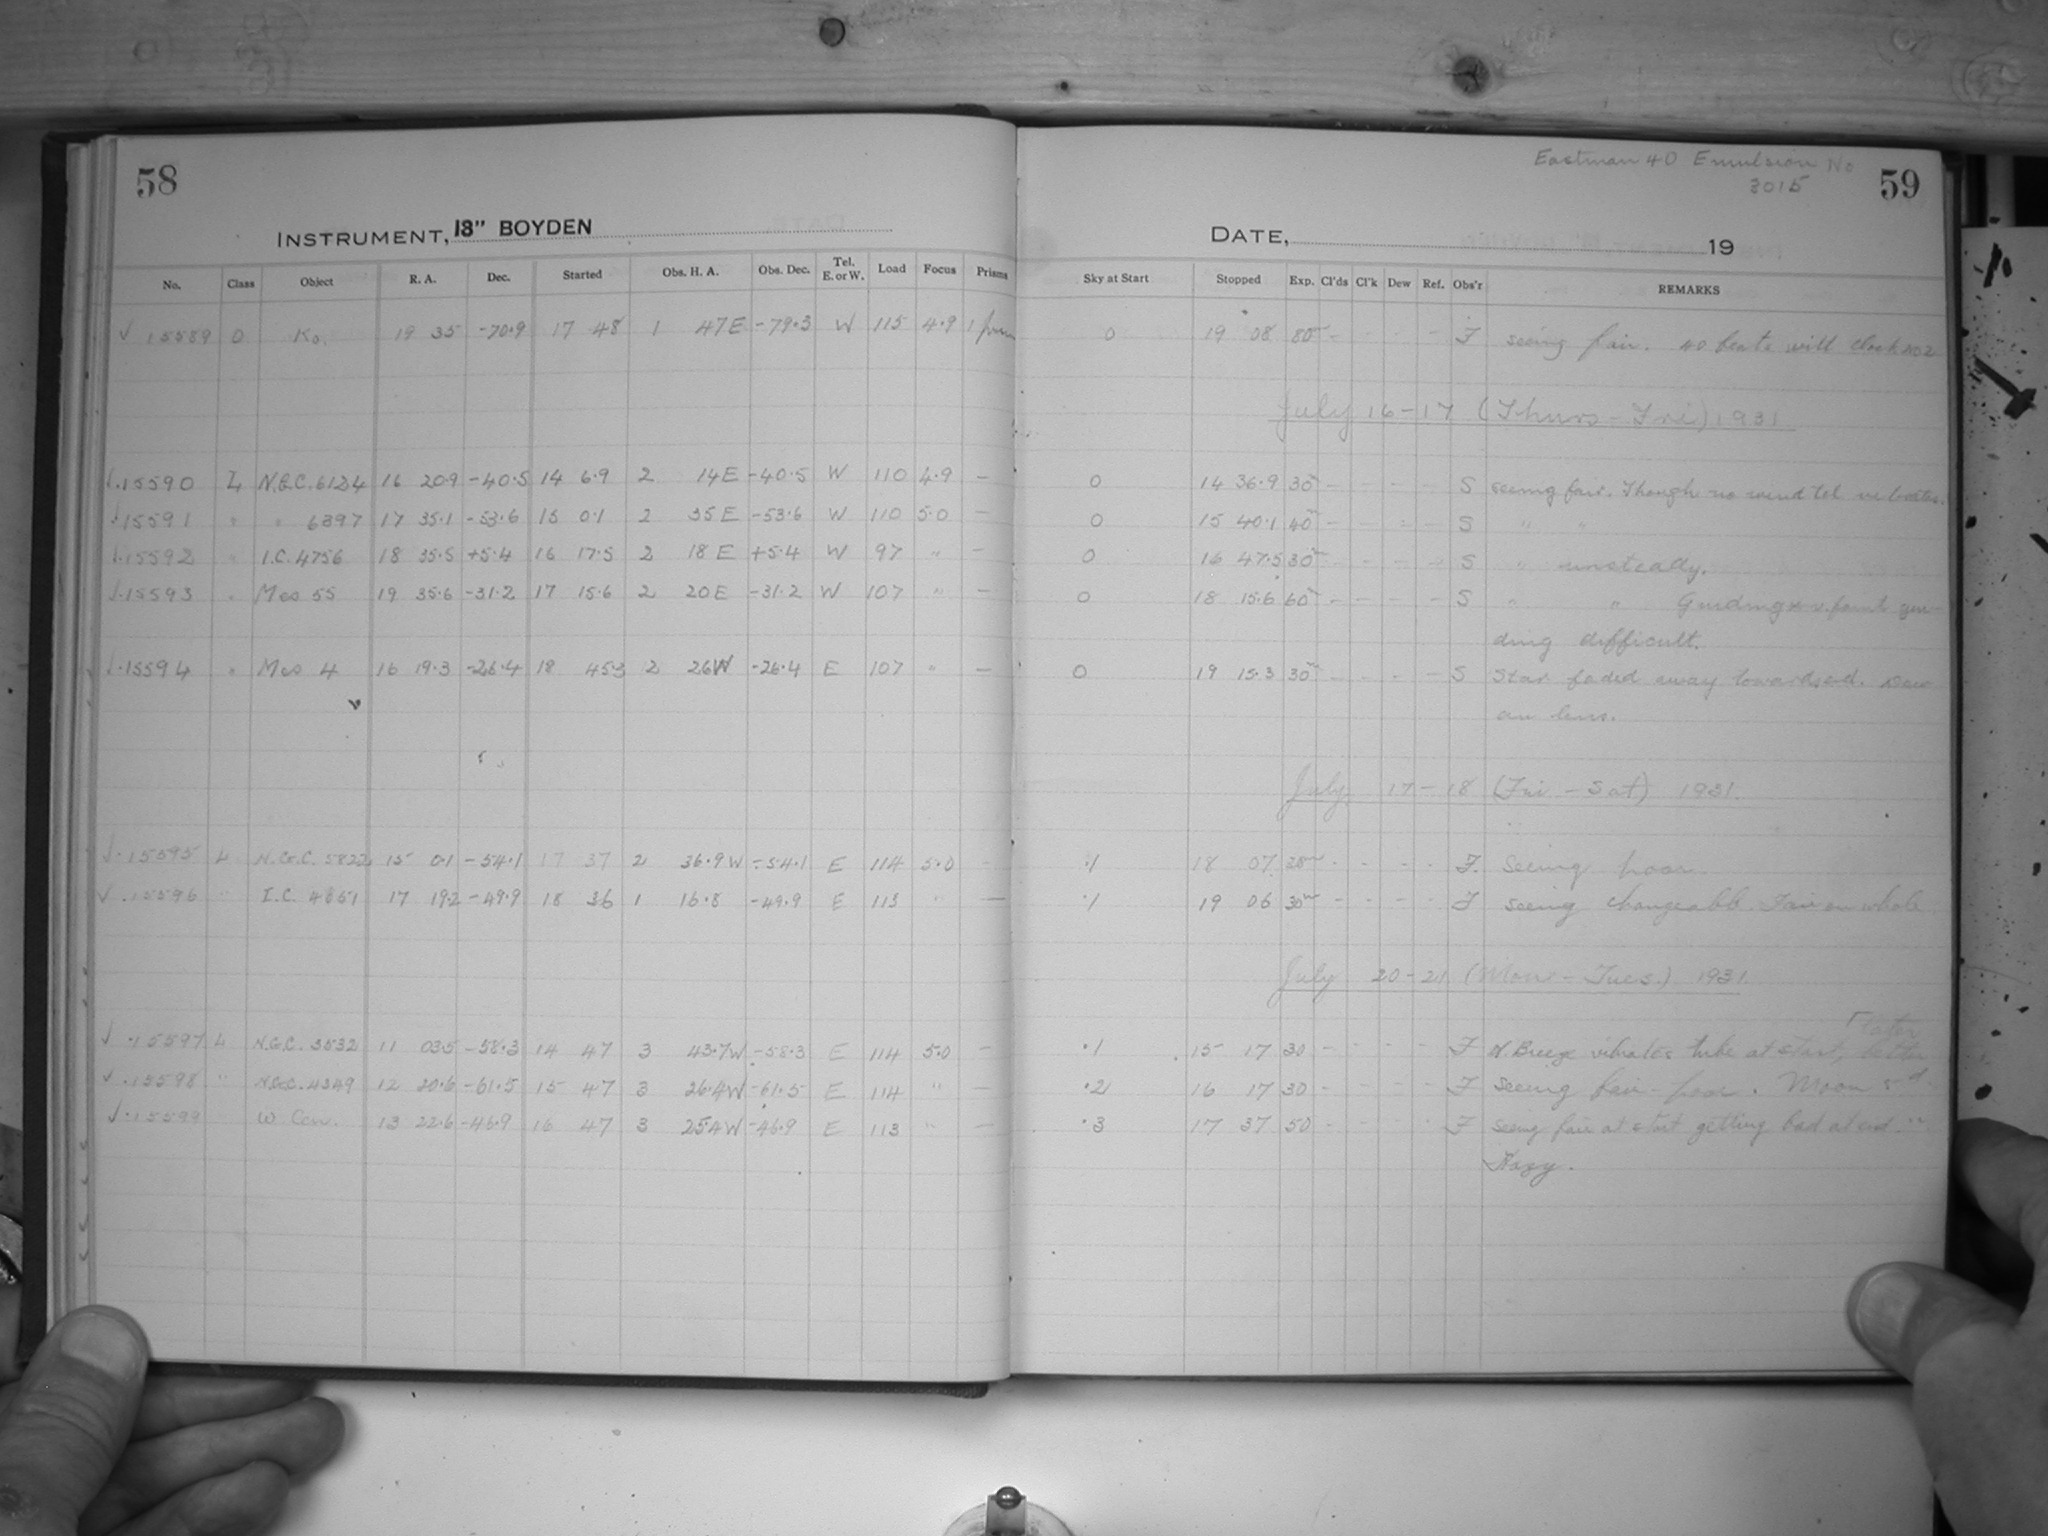 58
INSTRUMENT, 13" BOYDEN
No. Class Object R. A. Dec. Started Obs. H. A. Obs. Dec. Tel. E. or W. Load Focus Prisms
√ 15589 O Ko. 19 35 -70.9 17 48 1 47E -79.3 W 115 4.9 1
√.15590 L N.G.C. 6124 16 20.9 -40.5 14 6.9 2 14E -40.5 W 110 4.9 —
√.15591 " " 6397 17 35.1 -53.6 15 0.1 2 35E -53.6 W 110 5.0 —
√.15592 " I.C. 4756 18 35.5 +5.4 16 17.5 2 18E +5.4 W 97 " —
√.15593 " Mes 55 19 35.6 -31.2 17 15.6 2 20E -31.2 W 107 " —
√.15594 " Mes 4 16 19.3 -26.4 18 45.3 2 26W -26.4 E 107 " —
√.15595 L N.G.C. 5822 15 0.1 -54.1 17 37 2 36.9W -54.1 E 114 5.0 —
√.15596 " I.C. 4651 17 19.2 -49.9 18 36 1 16.8 -49.9 E 113 " —
√.15597 L N.G.C. 3532 11 03.5 -58.3 14 47 3 43.7W -58.3 E 114 5.0 —
√.15598 " N.G.C. 4349 12 20.6 -61.5 15 47 3 26.4W -61.5 E 114 " —
√.15599 " W Cen. 13 22.6 -46.9 16 47 3 25.4W -46.9 E 113 " —
Eastman 40 Emulsion No
3015
59
DATE, 19
Sky at Start Stopped Exp. Cl'ds Cl'k Dew Ref. Obs'r REMARKS
0 19 08 80m - - - - F seeing fair. 40 beats will clock no 2
July 16-17 (Thurs-Fri) 1931
0 14 36.9 30m - - - - S seeing fair. Though no wind tel vibrates.
0 15 40.1 40m - - - - S " "
0 16 47.5 30m - - - - S " unsteady.
0 18 15.6 60m - - - - S " " Guiding * v. faint gui-
ding difficult.
0 19 15.3 30m - - - - S Star faded away towards end. Dew
on lens.
July 17-18 (Fri-Sat) 1931.
.1 18 07 30m - - - - F. Seeing poor.
.1 19 06 30m - - - - F seeing changeable. Fair on whole
July 20-21 (Mon-Tues.) 1931.
later
.1 15 17 30 - - - - F N. Breeze vibrates tube at start, better
.2 16 17 30 - - - - F Seeing fair-poor. Moon 5d
.3 17 37 50 - - - - F seeing fair at start getting bad at end. "
Hazy.